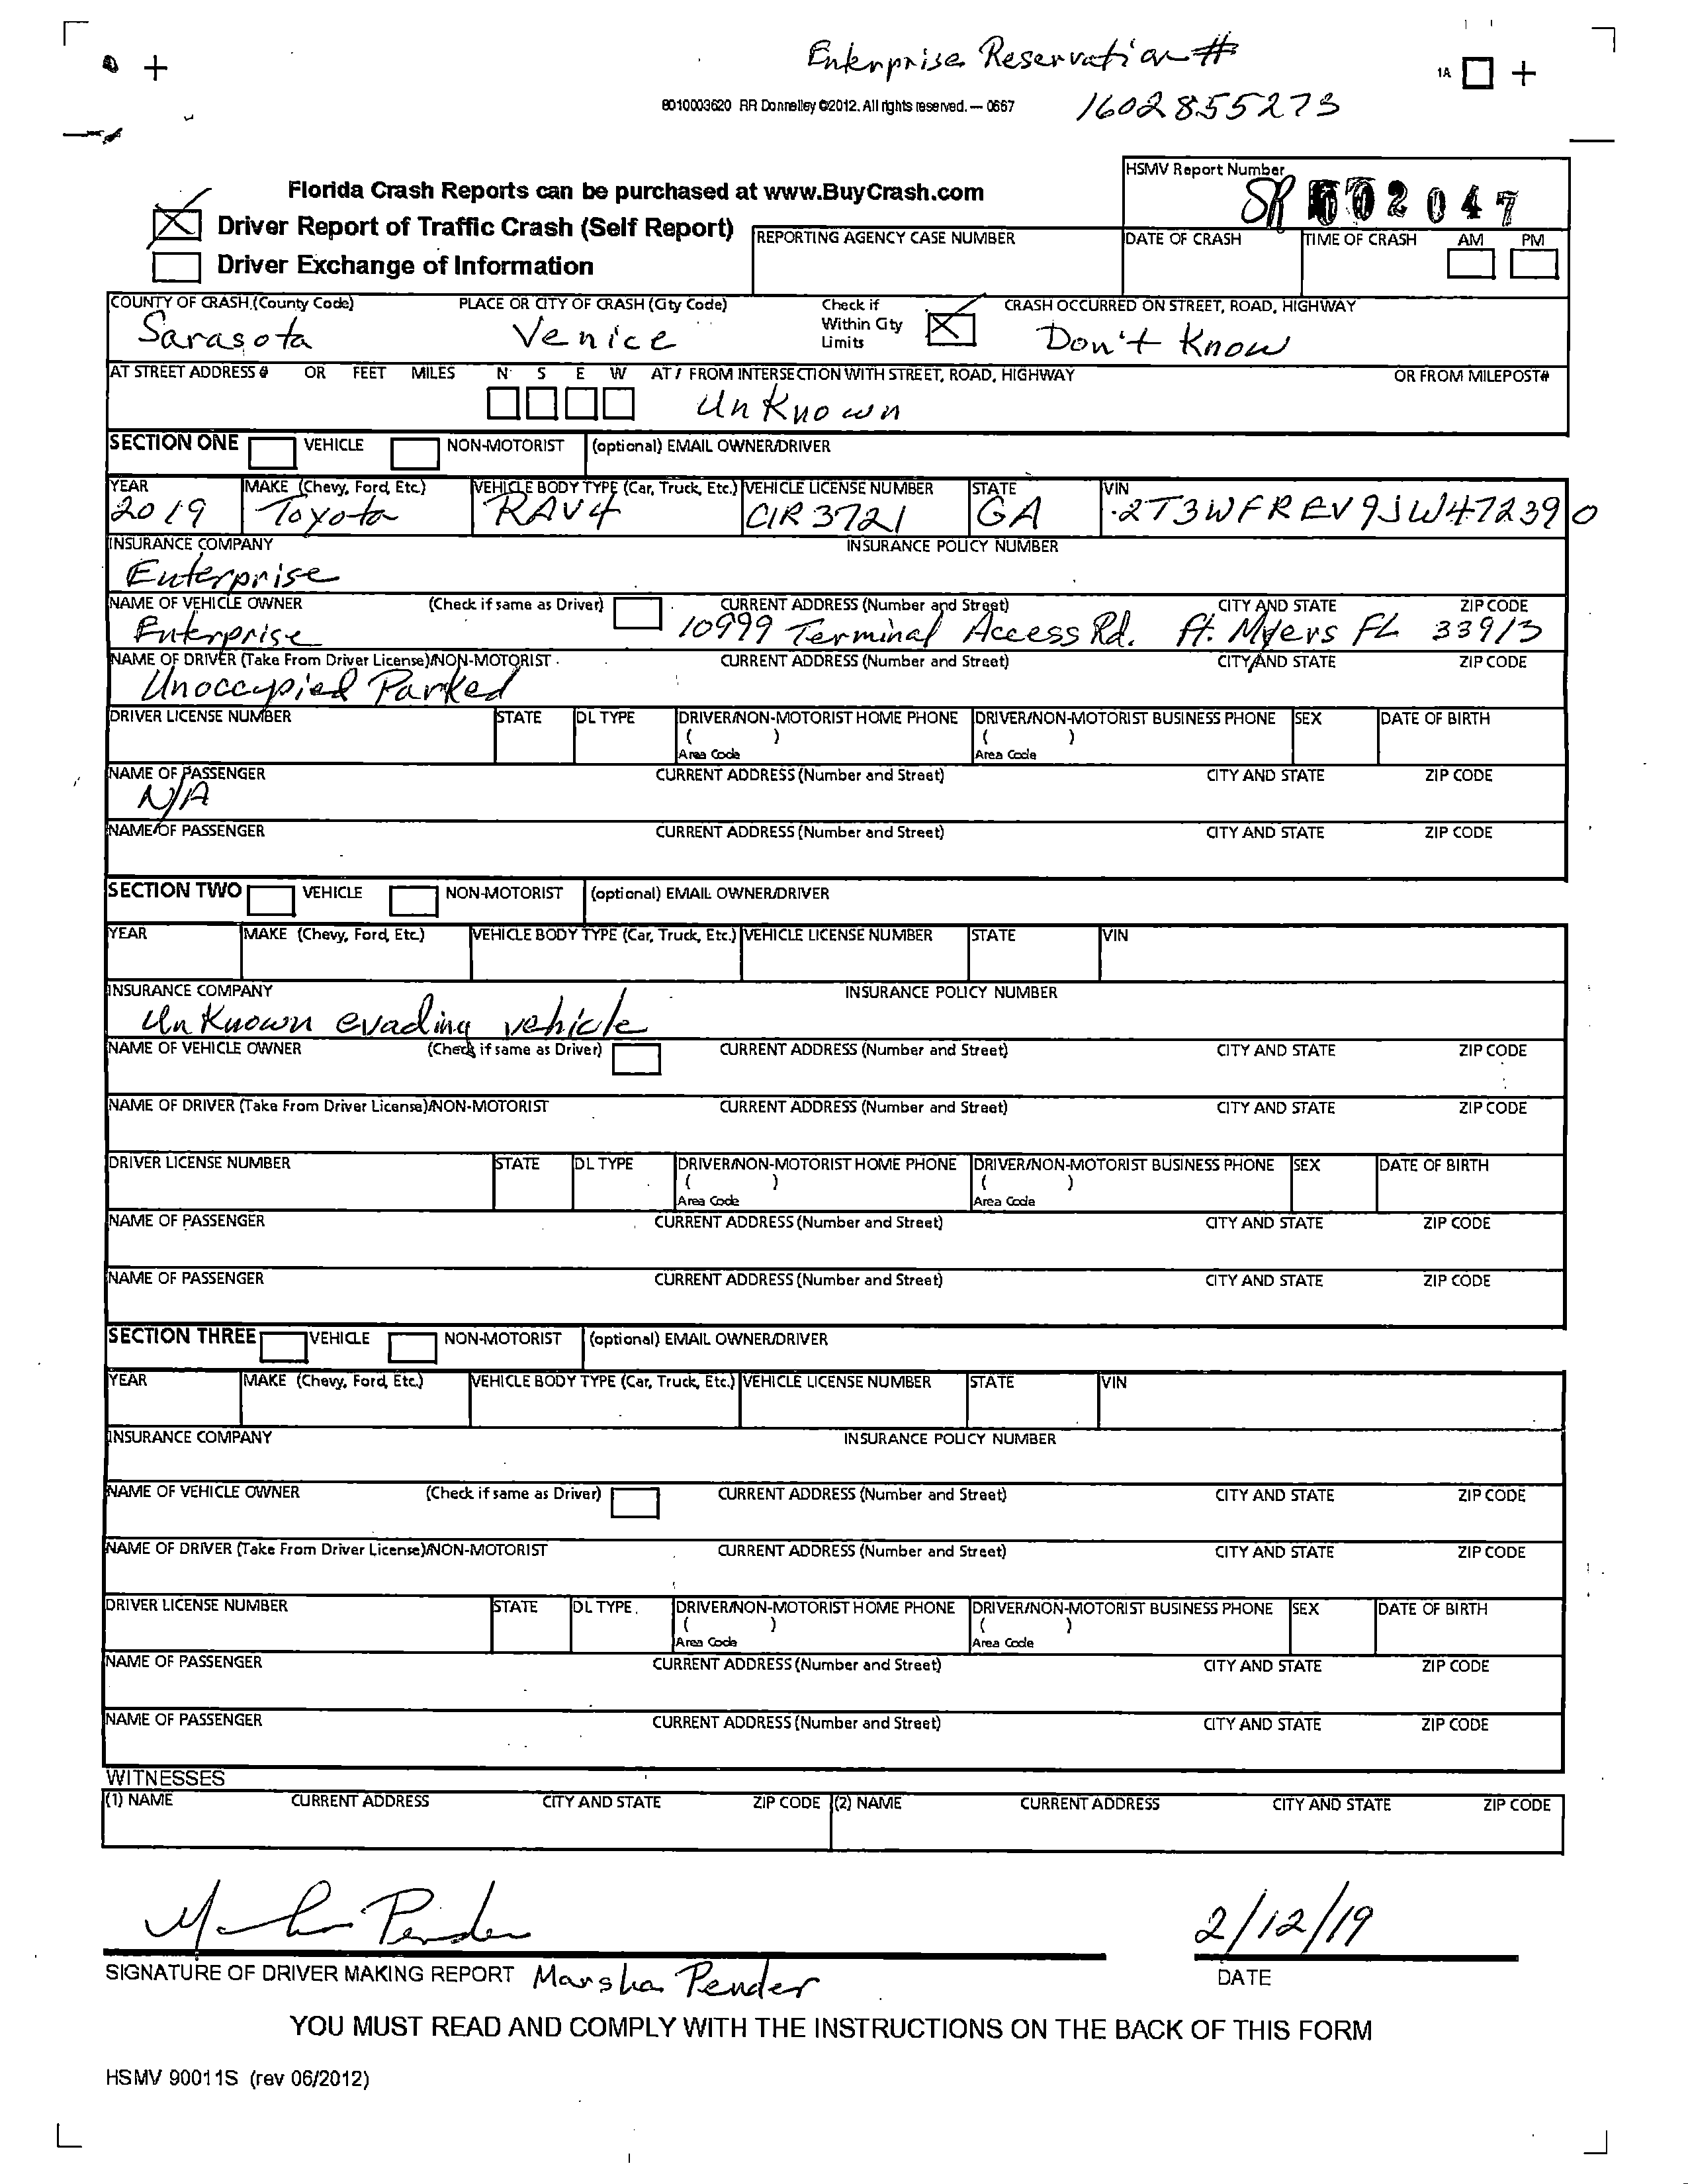 Enterprise Reservation #
1A
8010003620 RR Donnelley ©2012. All rights reserved. — 0667 1602855273
HSMV Report Number
Florida Crash Reports can be purchased at www.BuyCrash.com
SR 2047
Driver Report of Traffic Crash (Self Report)
REPORTING AGENCY CASE NUMBER DATE OF CRASH TIME OF CRASH AM PM
Driver Exchange of Information
COUNTY OF CRASH (County Code) PLACE OR CITY OF CRASH (City Code) Check if Within City Limits CRASH OCCURRED ON STREET, ROAD, HIGHWAY
Sarasota Venice Don't Know
AT STREET ADDRESS # OR FEET MILES N S E W AT / FROM INTERSECTION WITH STREET, ROAD, HIGHWAY OR FROM MILEPOST#
Unknown
SECTION ONE VEHICLE NON-MOTORIST (optional) EMAIL OWNER/DRIVER
YEAR MAKE (Chevy, Ford, Etc.) VEHICLE BODY TYPE (Car, Truck, Etc.) VEHICLE LICENSE NUMBER STATE VIN
2019 Toyota RAV4 CIR3721 GA 2T3WFREV9JW472390
INSURANCE COMPANY INSURANCE POLICY NUMBER
Enterprise
NAME OF VEHICLE OWNER (Check if same as Driver) CURRENT ADDRESS (Number and Street) CITY AND STATE ZIP CODE
Enterprise 10999 Terminal Access Rd. Ft. Myers FL 33913
NAME OF DRIVER (Take From Driver License)/NON-MOTORIST CURRENT ADDRESS (Number and Street) CITY AND STATE ZIP CODE
Unoccupied Parked
DRIVER LICENSE NUMBER STATE DL TYPE DRIVER/NON-MOTORIST HOME PHONE DRIVER/NON-MOTORIST BUSINESS PHONE SEX DATE OF BIRTH
( ) ( )
Area Code Area Code
NAME OF PASSENGER CURRENT ADDRESS (Number and Street) CITY AND STATE ZIP CODE
N/A
NAME OF PASSENGER CURRENT ADDRESS (Number and Street) CITY AND STATE ZIP CODE
SECTION TWO VEHICLE NON-MOTORIST (optional) EMAIL OWNER/DRIVER
YEAR MAKE (Chevy, Ford, Etc.) VEHICLE BODY TYPE (Car, Truck, Etc.) VEHICLE LICENSE NUMBER STATE VIN
INSURANCE COMPANY INSURANCE POLICY NUMBER
Unknown evading vehicle
NAME OF VEHICLE OWNER (Check if same as Driver) CURRENT ADDRESS (Number and Street) CITY AND STATE ZIP CODE
NAME OF DRIVER (Take From Driver License)/NON-MOTORIST CURRENT ADDRESS (Number and Street) CITY AND STATE ZIP CODE
DRIVER LICENSE NUMBER STATE DL TYPE DRIVER/NON-MOTORIST HOME PHONE DRIVER/NON-MOTORIST BUSINESS PHONE SEX DATE OF BIRTH
( ) ( )
Area Code Area Code
NAME OF PASSENGER CURRENT ADDRESS (Number and Street) CITY AND STATE ZIP CODE
NAME OF PASSENGER CURRENT ADDRESS (Number and Street) CITY AND STATE ZIP CODE
SECTION THREE VEHICLE NON-MOTORIST (optional) EMAIL OWNER/DRIVER
YEAR MAKE (Chevy, Ford, Etc.) VEHICLE BODY TYPE (Car, Truck, Etc.) VEHICLE LICENSE NUMBER STATE VIN
INSURANCE COMPANY INSURANCE POLICY NUMBER
NAME OF VEHICLE OWNER (Check if same as Driver) CURRENT ADDRESS (Number and Street) CITY AND STATE ZIP CODE
NAME OF DRIVER (Take From Driver License)/NON-MOTORIST CURRENT ADDRESS (Number and Street) CITY AND STATE ZIP CODE
DRIVER LICENSE NUMBER STATE DL TYPE DRIVER/NON-MOTORIST HOME PHONE DRIVER/NON-MOTORIST BUSINESS PHONE SEX DATE OF BIRTH
( ) ( )
Area Code Area Code
NAME OF PASSENGER CURRENT ADDRESS (Number and Street) CITY AND STATE ZIP CODE
NAME OF PASSENGER CURRENT ADDRESS (Number and Street) CITY AND STATE ZIP CODE
WITNESSES
(1) NAME CURRENT ADDRESS CITY AND STATE ZIP CODE (2) NAME CURRENT ADDRESS CITY AND STATE ZIP CODE
Marsha Pender 2/12/19
SIGNATURE OF DRIVER MAKING REPORT Marsha Pender DATE
YOU MUST READ AND COMPLY WITH THE INSTRUCTIONS ON THE BACK OF THIS FORM
HSMV 90011S (rev 06/2012)